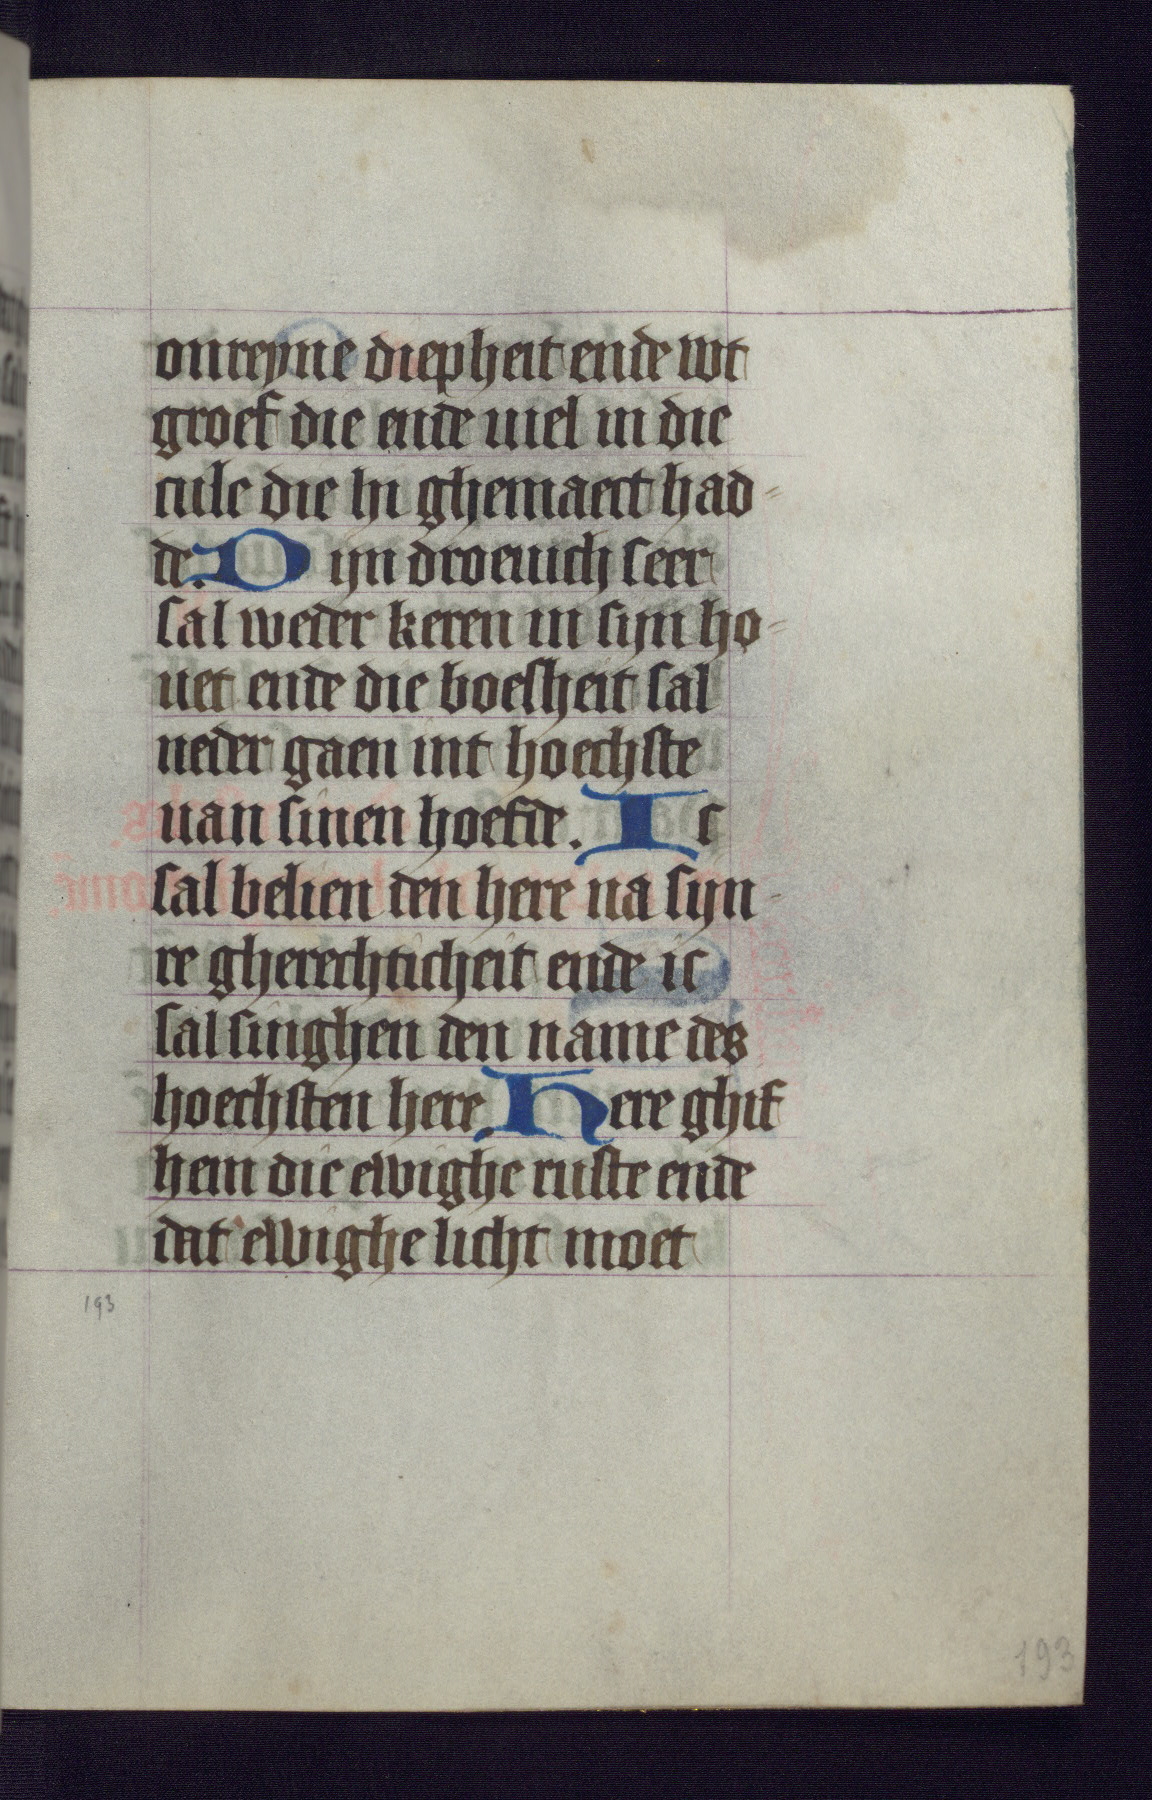 onreyne diepheit ende wt
groef die ende uiel in die
cule die hi ghemaect had-
de. Dijn droeuich seer
sal weder keren in sijn ho-
uet ende die boesheit sal
neder gaen int hoechste
uan sinen hoefde. Ic
sal belien den here na sijn-
re gherechticheit ende ic
sal singhen den name des
hoechsten here. Here ghif
hem die ewighe ruste ende
dat ewighe licht moet
193
193